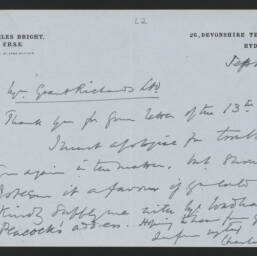 L2
LES BRIGHT,
F.R.S.E.
26, DEVONSHIRE TE
HYD
Sept
Mr. Grant Richards Ltd
Thank you for your letter of the 13th
I must apologise for troub
you again in the matter, but should
esteem it a favour if you could
kindly supply me with Mr Wadham
Peacock's address. Hoping to hear from you
Charles